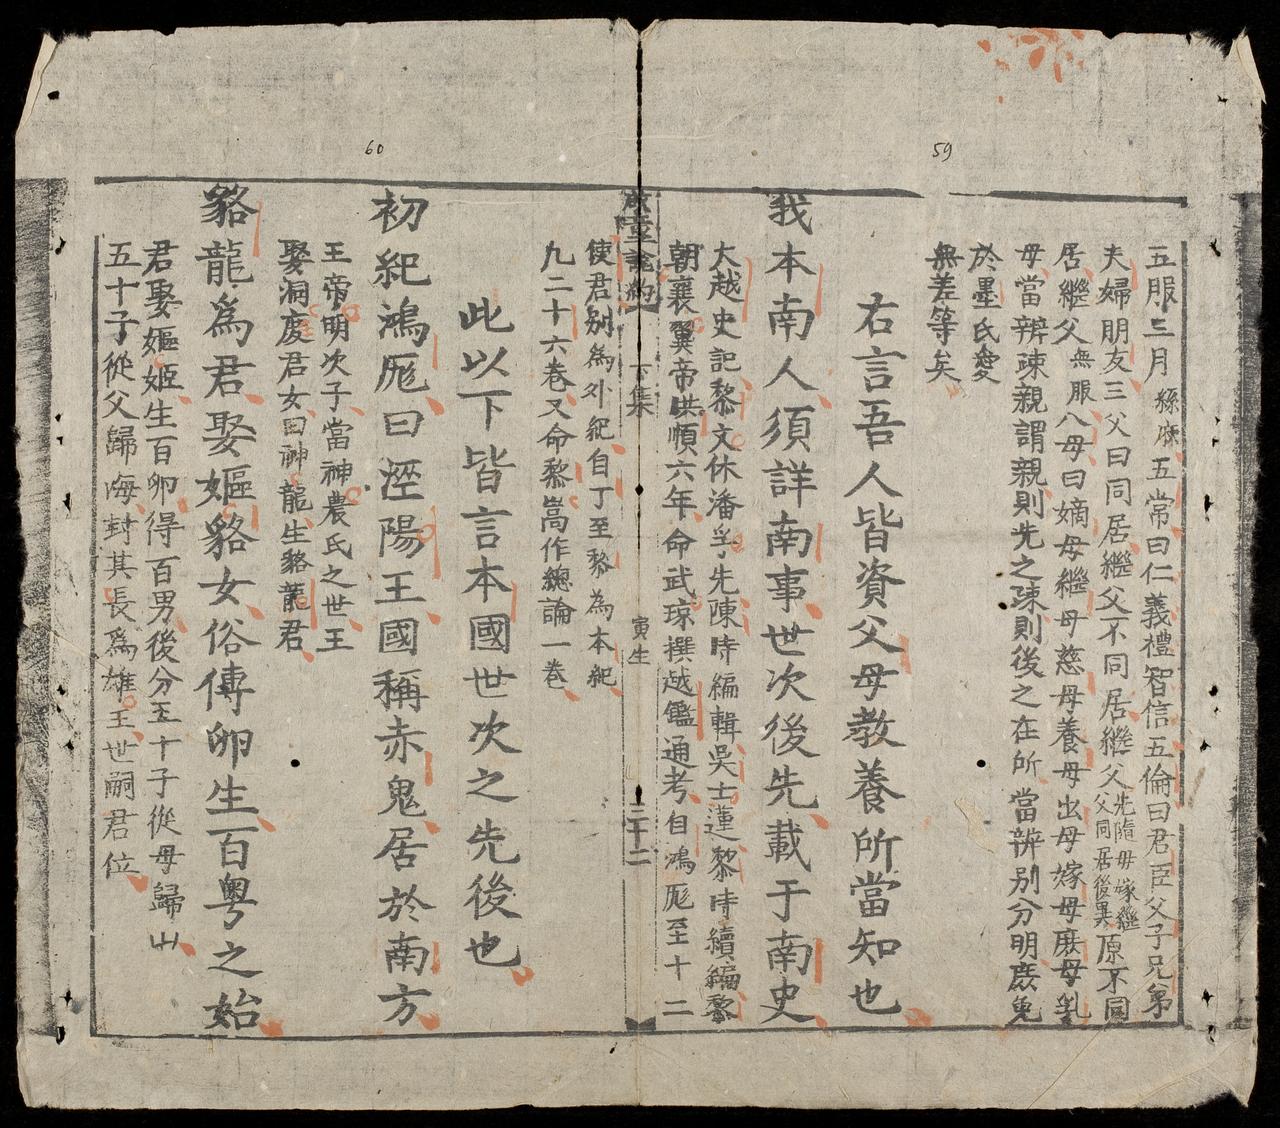 59
五服三月緦麻五常曰仁義禮智信五倫曰君臣父子兄弟
夫婦朋友三父曰同居繼父不同居繼父先隨母嫁繼父同居後異原不同
居繼父無服八母曰嫡母繼母慈母養母出母嫁母庶母乳
母當辨疎親謂親則先之疎則後之在所當辨別分明庶免
於墨氏愛
無差等矣
右言吾人皆資父母教養所當知也
我本南人須詳南事世次後先載于南史
大越史記黎文休潘孚先陳時編輯吳士蓮黎時續編黎
朝襄翼帝洪順六年命武瓊撰越鑑通考自鴻厖至十二
下集
寅生
三十二
使君別為外紀自丁至黎為本紀
九二十六卷又命黎嵩作總論一卷
此以下皆言本國世次之先後也
60
初紀鴻厖曰涇陽王國稱赤鬼居於南方
王帝明次子當神農氏之世王
娶洞庭君女曰神龍生貉龍君
貉龍為君娶嫗貉女俗傳卵生百粤之始
君娶嫗姬生百卵得百男後分五十子從母歸山
五十子從父歸海封其長爲雄王世嗣君位